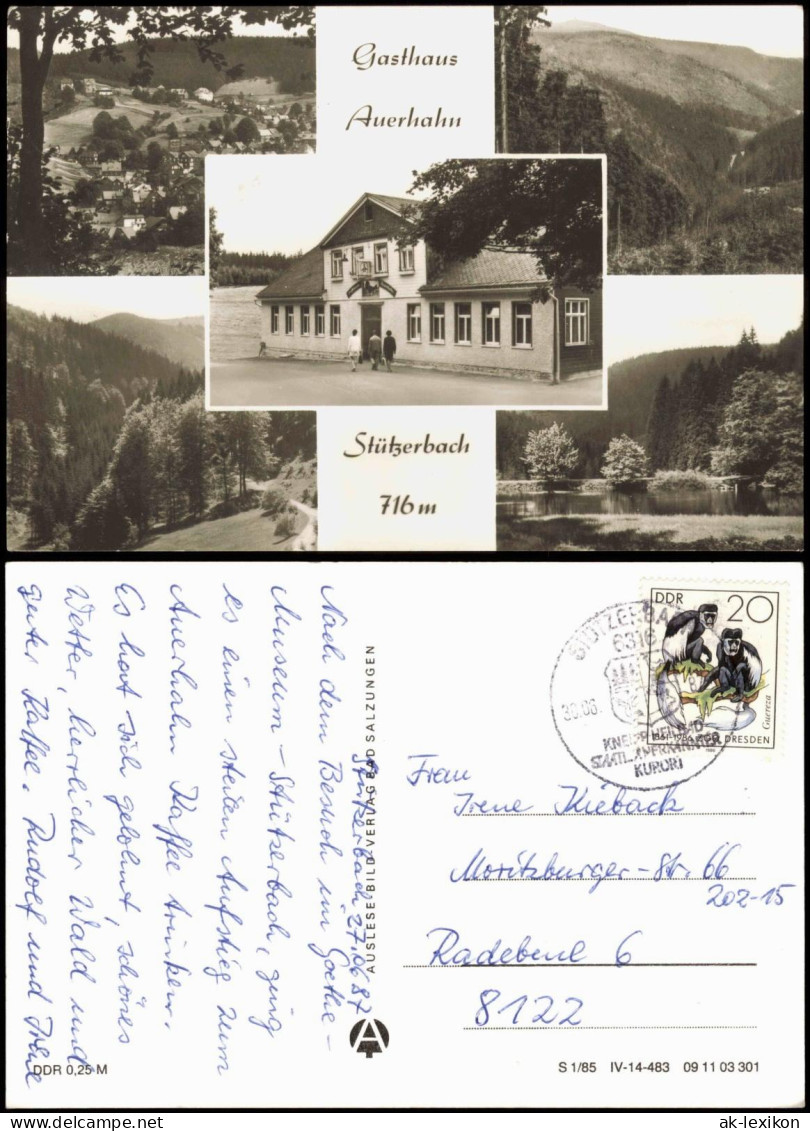 Gasthaus
Auerhahn
Stützerbach
716 m
Stützerbach 27.06.87
Nach dem Besuch im Goethe-
Museum - Stützerbach, ging
es einen steilen Aufstieg zum
Auerhahn Kaffee trinken.
Es hat sich gelohnt, schönes
Wetter, herrlicher Wald und
guter Kaffee. Rudolf und Irene
AUSLESE-BILD-VERLAG BAD SALZUNGEN
A
DDR 0,25 M
DDR 20
Guereza
DRESDEN
6316
30.06.
KNEIPPHEILBAD
STAATL. ANERKANNTER
KURORT
Frau
Irene Kieback
Moritzburger-Str. 66
202-15
Radebeul 6
8122
S 1/85 IV-14-483 09 11 03 301
ak-lexikon